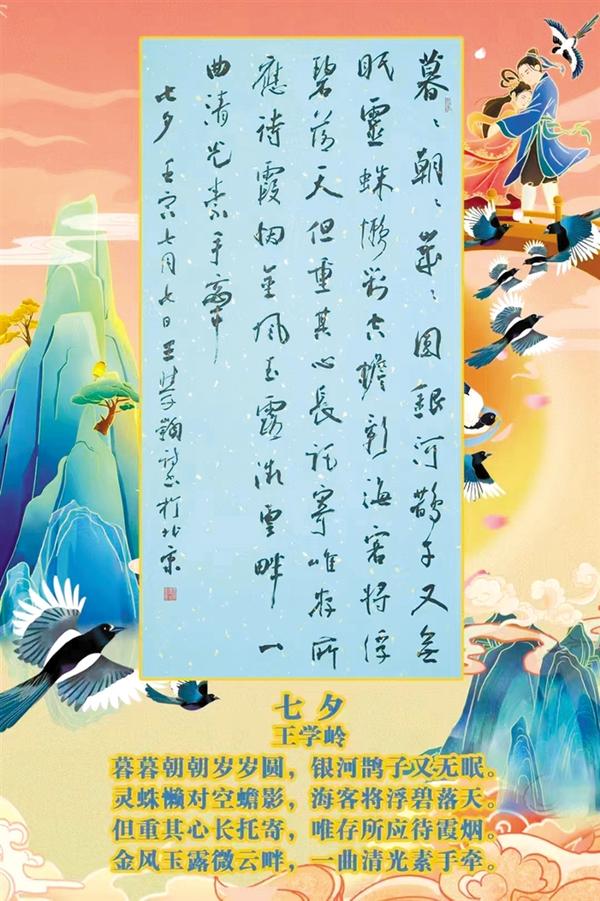 暮〻朝〻歲〻圓銀河鵲子又無
眠靈蛛懶對空蟾影海客將浮
碧落天但重其心長託寄唯存所
應待霞烟金風玉露微雲畔一
曲清光素手牽
七夕 壬寅七月七日王學嶺於北京
七夕
王学岭
暮暮朝朝岁岁圆，银河鹊子又无眠。
灵蛛懒对空蟾影，海客将浮碧落天。
但重其心长托寄，唯存所应待霞烟。
金风玉露微云畔，一曲清光素手牵。